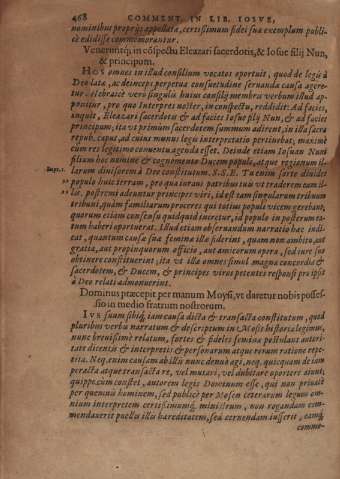 468 COMMENT. IN LIB. IOSVE,
nominibus proprijs appellata, certissimum fidei suæ exemplum publi-
cè edidisse commemorantur.
Venerúntq; in cōspectu Eleazari sacerdotis, & Iosue filij Nun,
& principum.
HOS omnes in illud consilium vocatos oportuit, quod de legis à
Deo latæ, ac deinceps perpetua consuetudine seruanda causa agere-
tur. celebrare verò singulis huius consilij membra verbum illud ap-
ponitur, pro quo Interpres noster, in conspectu, reddidit: Ad facies,
inquit, Eleazari sacerdotis & ad facies Iosue filij Nun, & ad facies
principum, ita vt primùm sacerdotem summum adirent, in illa sacra
repub. caput, ad cuius munus legis interpretatio pertinebat, maximè
cùm res legitimo conuentu agenda esset. Deinde etiam Iosuam Nuni
filium hoc nomine & cognomento Ducem populi, atque regionum il-
larum diuisorem à Deo constitutum. S.S.E. Tu enim sorte diuidet
populo huic terram, pro qua iuraui patribus tuis vt traderem eam il-
lis. postremò adeuntur principes viri, id est tam singularum tribuum
tribuni, quàm familiarum proceres qui totius populi vicem gerebant,
quorum etiam consensu quidquid iuretur, id populo in posterum ra-
tum haberi oportuerat. Illud etiam obseruandum narratio hæc indi-
cat, quantum causæ suæ feminæ illæ fiderent, quam non ambitu, aut
gratia, aut propinquorum officio, aut amicorum opera, sed iure suo
obtinere constituerint, ita vt illa omnes simul magna concordia &
sacerdotem, & Ducem, & principes viros petentes responsi pro ipsis
à Deo relati admonuerint.
Dominus præcepit per manum Moysi, vt daretur nobis posses-
sio in medio fratrum nostrorum.
IVS suum sibiq; iam causa dicta & transacta constitutum, quod
pluribus verbis narratum & descriptum in Mosis historia legimus,
nunc breuissimè relatum, fortes & fideles feminæ postulant autori-
tate dicentis & interpretis & personarum atque rerum ratione repe-
tita. Neq; enim causam ab illis nunc denuò agi, neq; quicquam de iam
peracta atque transacta re, vel mutari, vel dubitare oportere aiunt:
quippe cùm constet, autorem legis Dominum esse, qui non priuatè
per quemuis hominem, sed publicè per Mosen ceterarum legum om-
nium interpretem certissimumq; ministrum, non rogandam com-
mendauerit puellis illis hæreditatem, sed cernendam iusserit, eamq;
comme-